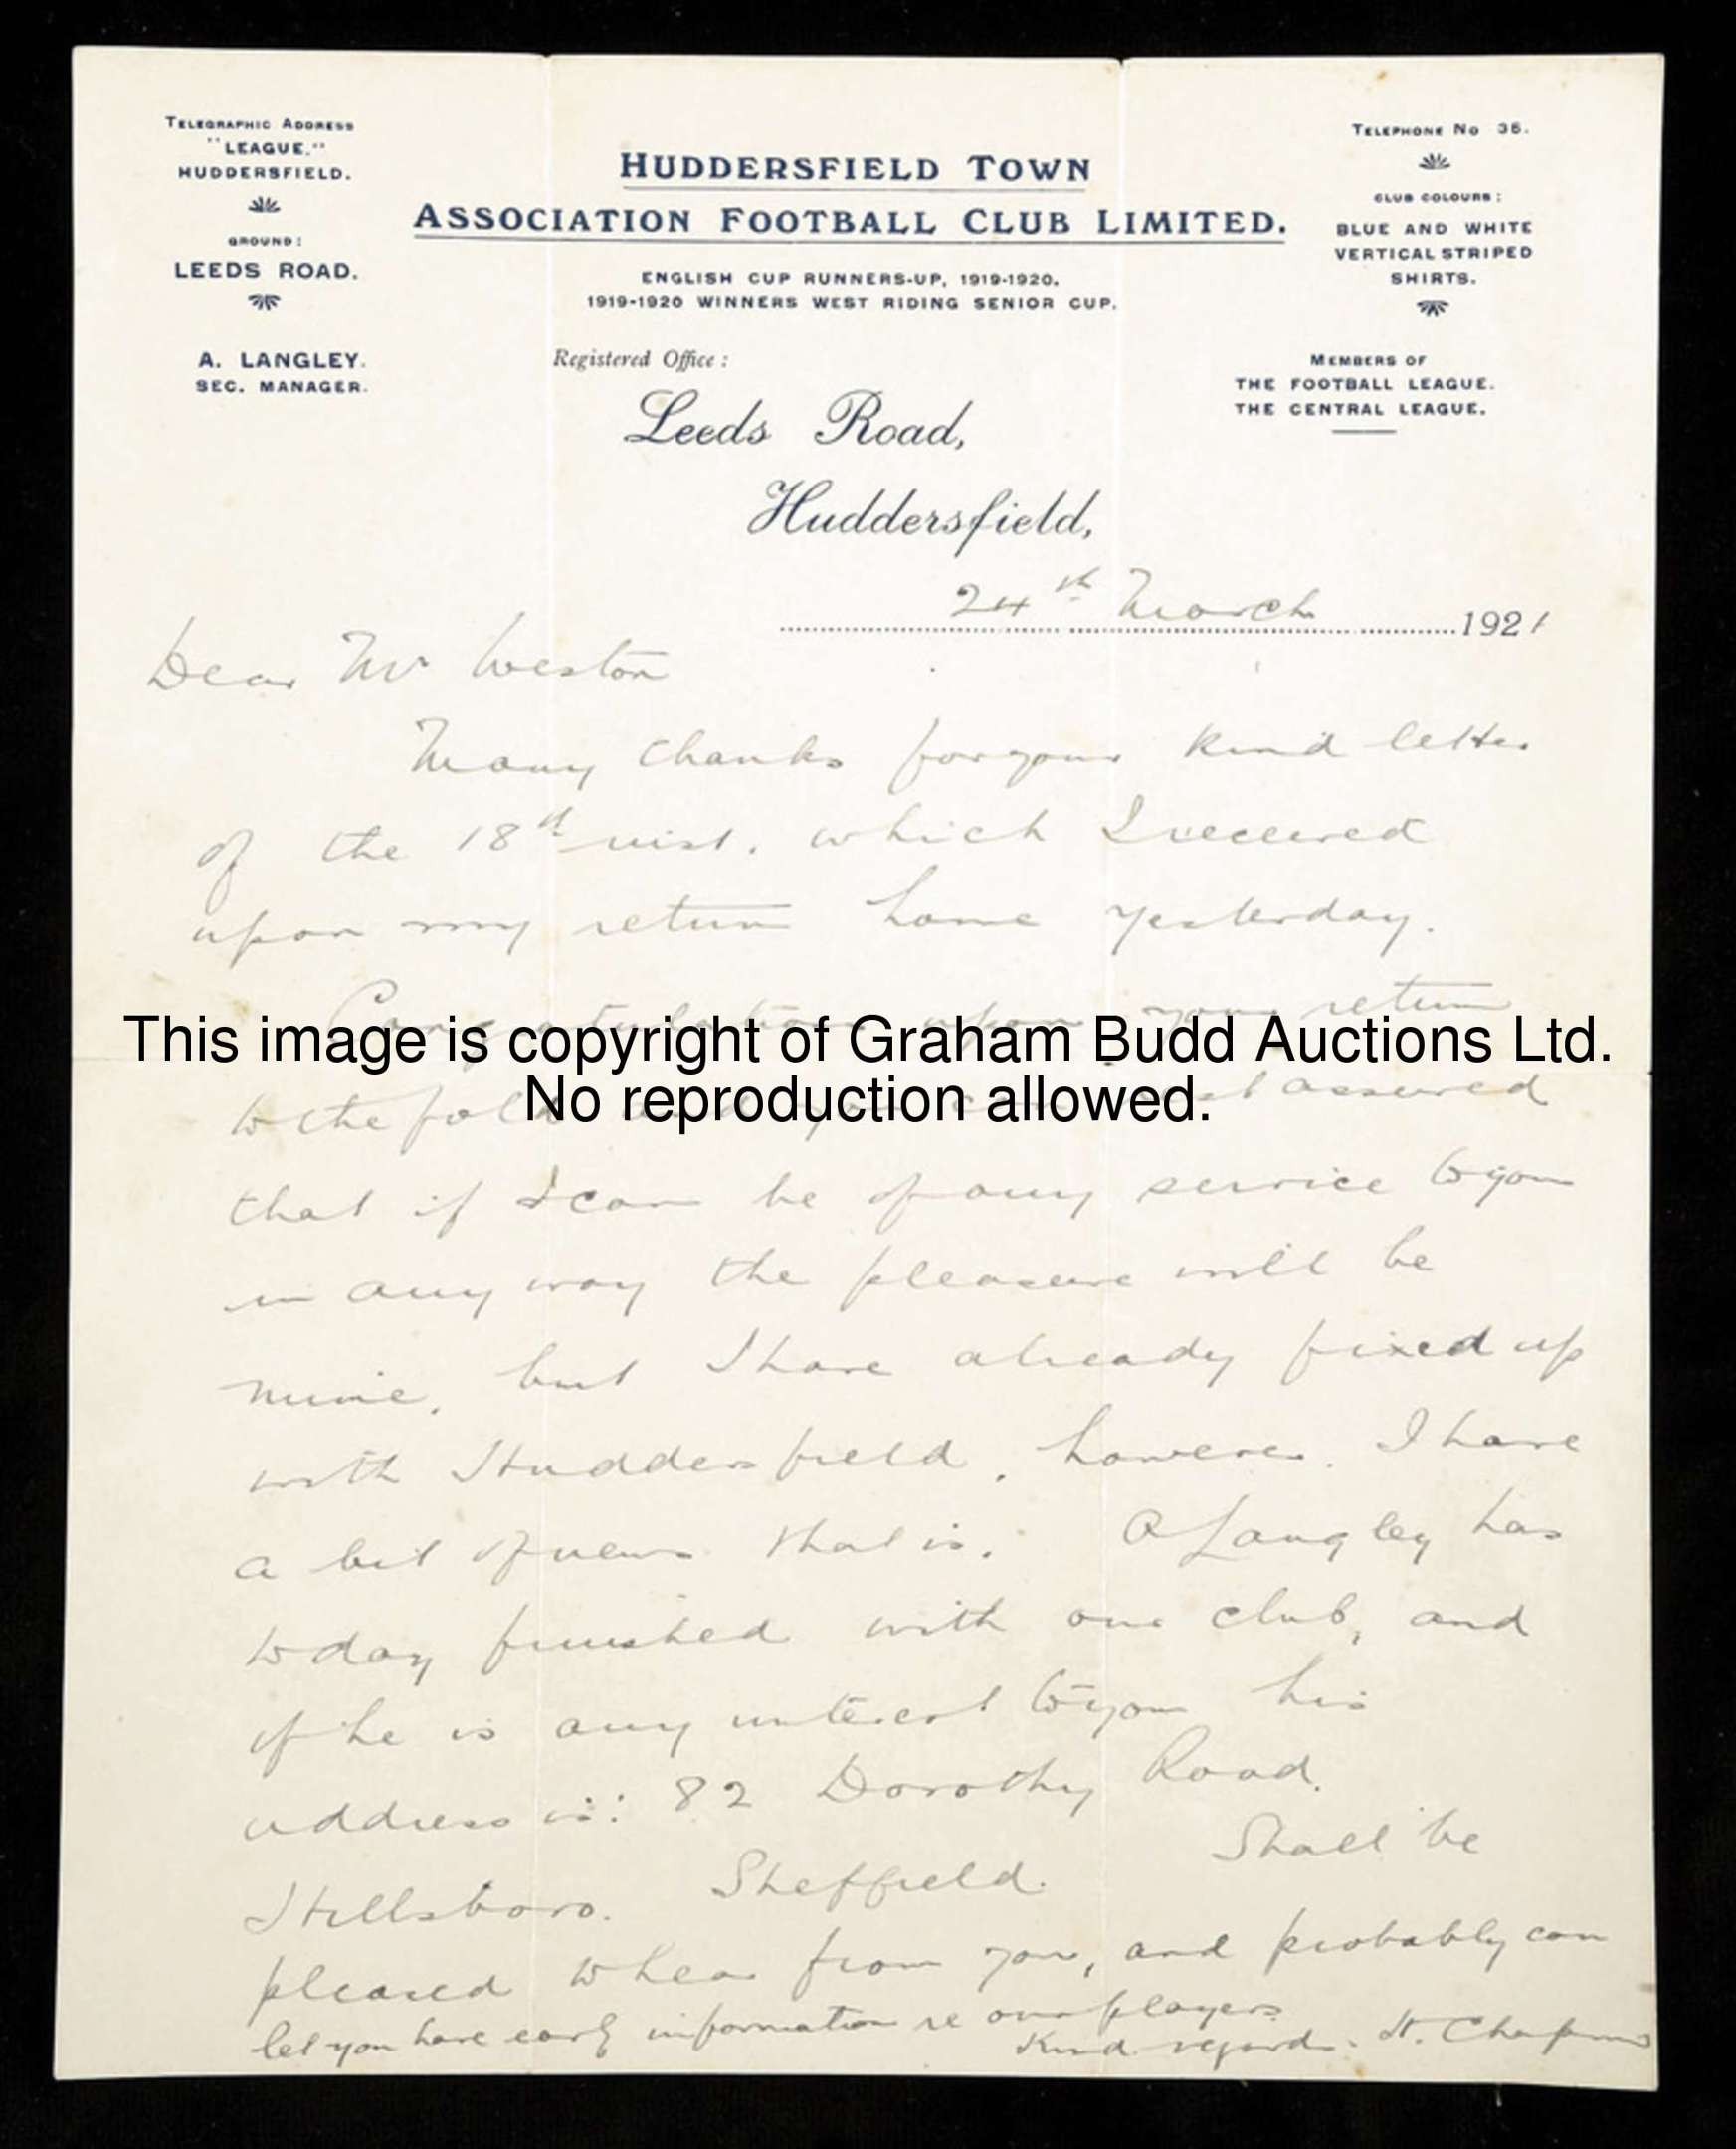 TELEGRAPHIC ADDRESS
"LEAGUE."
HUDDERSFIELD.
GROUND:
LEEDS ROAD.
A. LANGLEY.
SEC. MANAGER.
HUDDERSFIELD TOWN
ASSOCIATION FOOTBALL CLUB LIMITED.
ENGLISH CUP RUNNERS-UP, 1919-1920.
1919-1920 WINNERS WEST RIDING SENIOR CUP.
Registered Office:
Leeds Road,
Huddersfield,
TELEPHONE No 36.
CLUB COLOURS:
BLUE AND WHITE
VERTICAL STRIPED
SHIRTS.
MEMBERS OF
THE FOOTBALL LEAGUE.
THE CENTRAL LEAGUE.
24th March 1921
Dear Mr Weston
Many thanks for your kind letter
of the 18th inst. which I received
upon my return home yesterday.
Congratulations upon your return
to the fold and you can rest assured
that if I can be of any service to you
in any way the pleasure will be
mine, but I have already fixed up
with Huddersfield, however. I have
a bit of news that is. A Langley has
today finished with our club, and
if he is any interest to you his
address is: 82 Dorothy Road.
Hillsboro. Sheffield. Shall be
pleased to hear from you, and probably can
let you have early information re our players
Kind regards. H. Chapman
This image is copyright of Graham Budd Auctions Ltd.
No reproduction allowed.